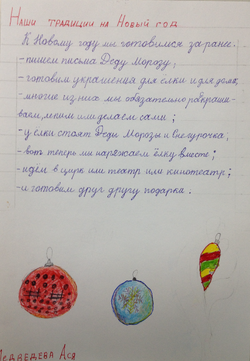 Наши традиции на Новый год
К Новому году мы готовимся заранее:
-пишем письма Деду Морозу;
-готовим украшения для ёлки и для дома,
-многие из них мы обязательно
ваем, или делаем сами;
-у ёлки стоят Деды Морозы и Снегурочка;
-вот теперь мы наряжаем ёлку вместе;
-идём в цирк или театр или кинотеатр;
-и готовим друг другу подарки.
Медведева Ася